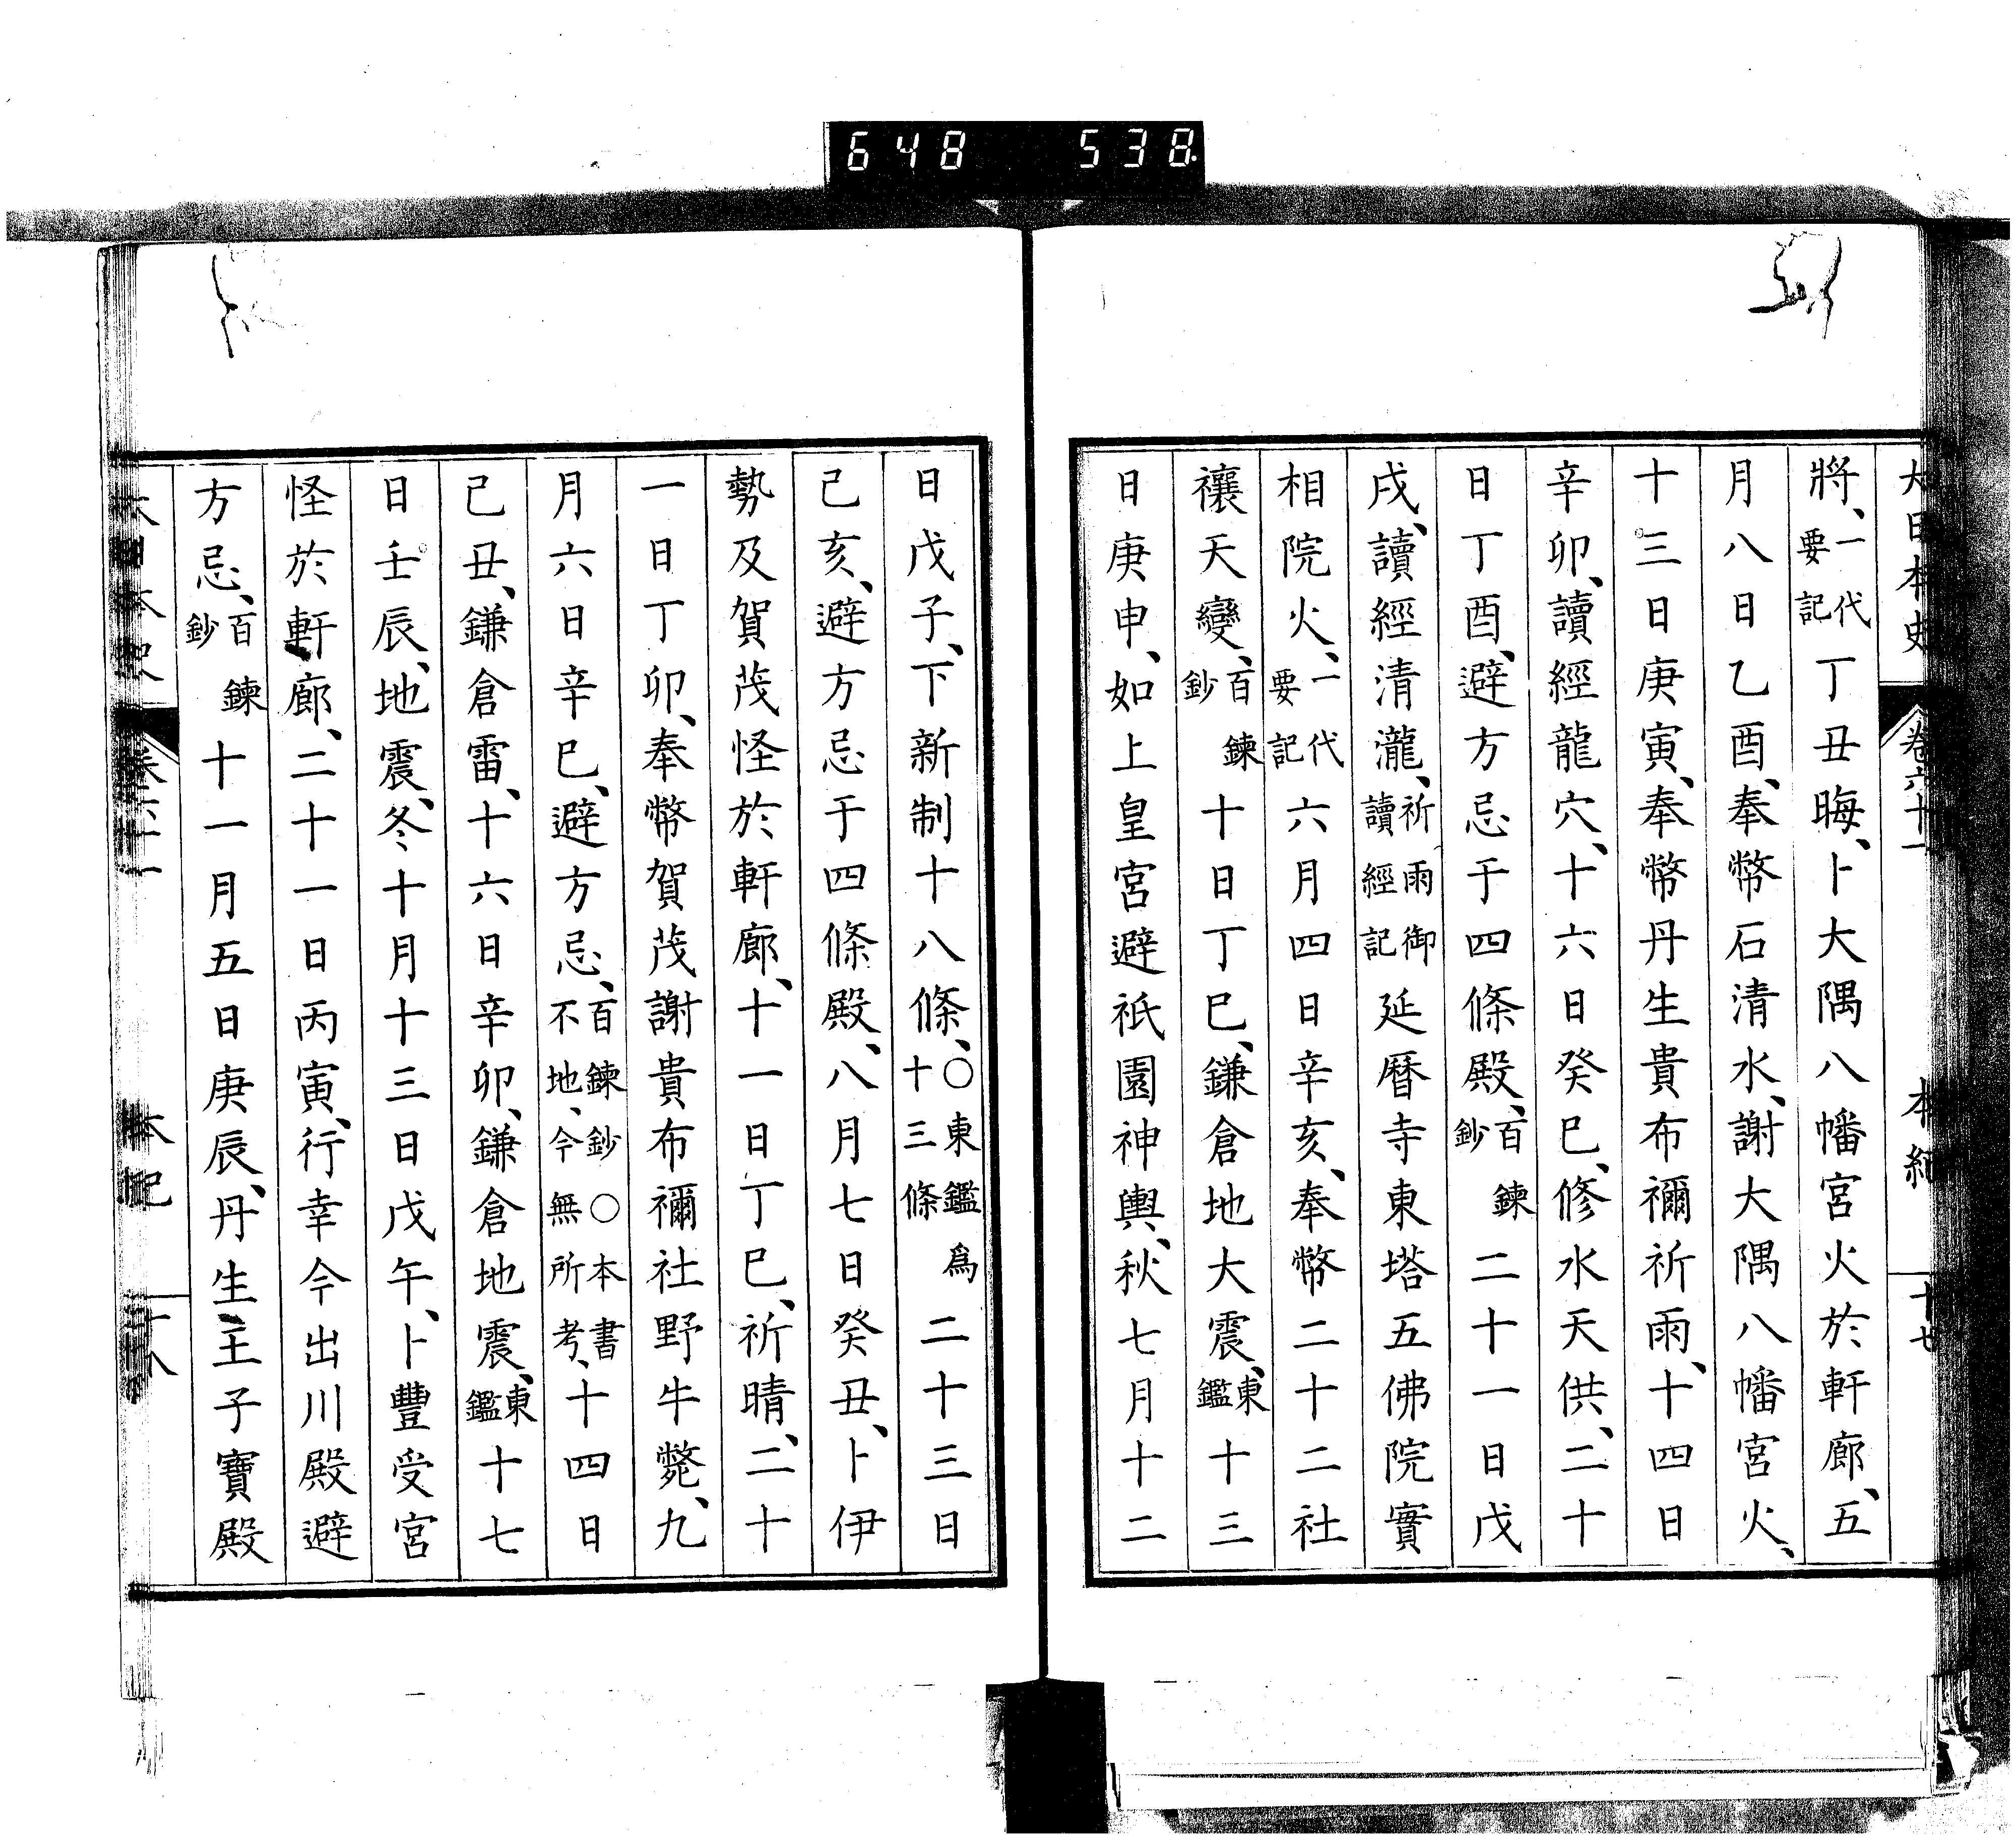 648 538
大日本史 卷六十一 本紀 十七
將、一代要記丁丑晦、卜大隅八幡宮火於軒廊、五
月八日乙酉、奉幣石清水、謝大隅八幡宮火、
十三日庚寅、奉幣丹生貴布禰祈雨、十四日
辛卯、讀經龍穴、十六日癸巳、修水天供、二十
日丁酉、避方忌于四條殿、百鍊鈔二十一日戊
戌、讀經清瀧、祈雨御讀經記延曆寺東塔五佛院實
相院火、一代要記六月四日辛亥、奉幣二十二社
禳天變、百鍊鈔十日丁巳、鎌倉地大震、東鑑十三
日庚申、如上皇宮避祇園神輿、秋七月十二
日戊子、下新制十八條、○東鑑爲十三條二十三日
己亥、避方忌于四條殿、八月七日癸丑、卜伊
勢及賀茂怪於軒廊、十一日丁巳、祈晴、二十
一日丁卯、奉幣賀茂謝貴布禰社野牛斃、九
月六日辛巳、避方忌、百鍊鈔○本書不地、今無所考、十四日
己丑、鎌倉雷、十六日辛卯、鎌倉地震、東鑑十七
日壬辰、地震、冬十月十三日戊午、卜豐受宮
怪於軒廊、二十一日丙寅、行幸今出川殿避
方忌、百鍊鈔十一月五日庚辰、丹生王子寶殿
大日本史 卷六十一 本紀 十八